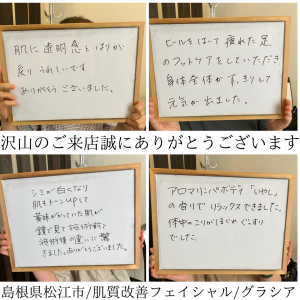 肌に透明感とはりが
戻りうれしいです
ありがとうございました。
ヒールをはいて疲れた足
のフットケアをしていただき
身体全体がすっきりして
元気が出ました。
沢山のご来店誠にありがとうございます
シミが白くなり
肌もトーンupして
黄味がかっていた肌が
鏡で見て施術前と
施術後の違いに驚
きました。ありがとうございました。
アロマリンパボディ「いやし」
の香りでリラックスできました。
体中のこりがほぐれぐっすり
でした。
島根県松江市/肌質改善フェイシャル/グラシア